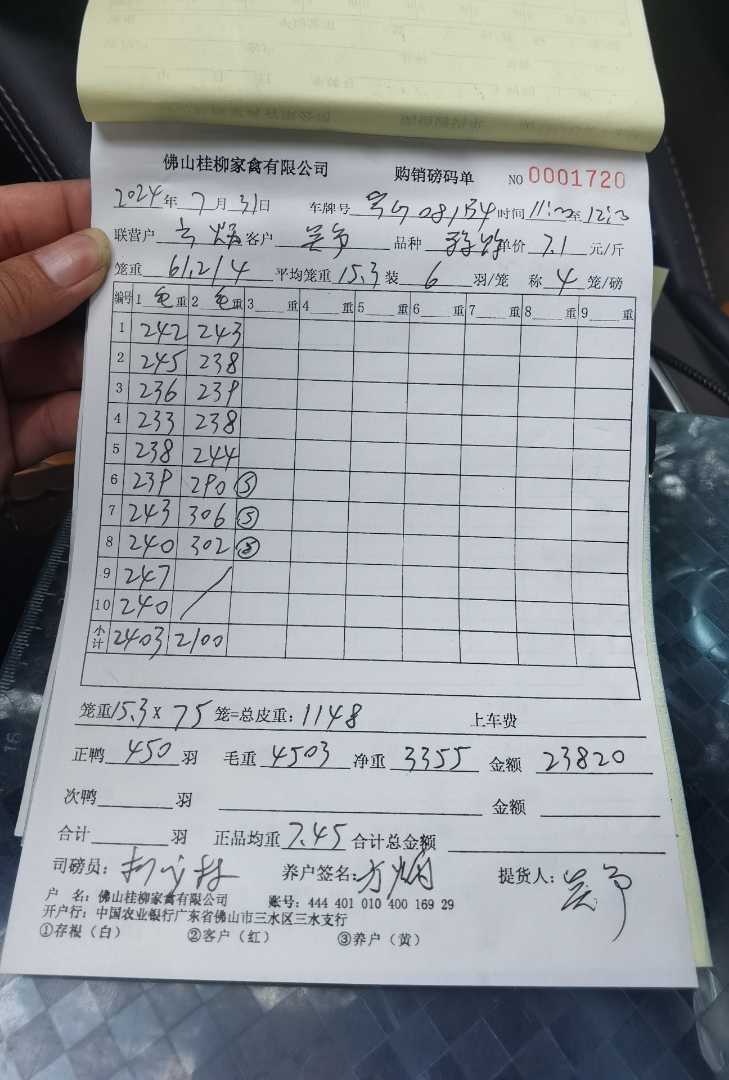 佛山桂柳家禽有限公司 购销磅码单 NO 0001720
2024年 7月 31日 车牌号 时间 11:20至12:20
联营户 客户 吴争 品种 单价 7.1 元/斤
笼重 61.2/4 平均笼重15.3装 6 羽/笼 称 4 笼/磅
编号 1 毛重 2 毛重 3 重 4 重 5 重 6 重 7 重 8 重 9 重
1 242 243
2 245 238
3 236 239
4 233 238
5 238 244
6 239 290 ⑤
7 243 306 ⑤
8 240 302 ⑤
9 247 /
10 240
小计 2403 2100
笼重15.3 X 75 笼=总皮重:1148 上车费
正鸭 450 羽 毛重 4503 净重 3355 金额 23820
次鸭 羽 金额
合计 羽 正品均重 7.45 合计总金额
司磅员: 养户签名: 方炳 提货人: 吴争
户 名:佛山桂柳家禽有限公司 账号:444 401 010 400 169 29
开户行:中国农业银行广东省佛山市三水区三水支行
①存根(白) ②客户(红) ③养户(黄)